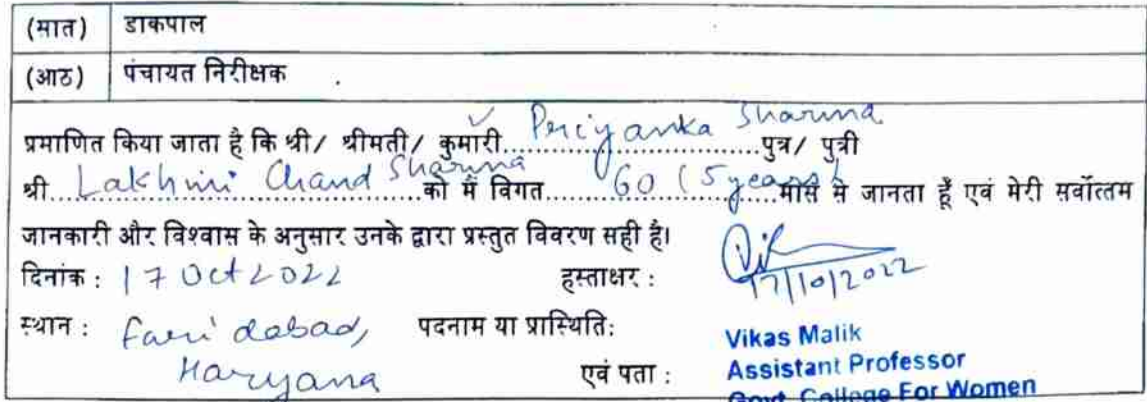 (सात) डाकपाल
(आठ) पंचायत निरीक्षक
प्रमाणित किया जाता है कि श्री/ श्रीमती/ कुमारी Priyanka Sharma पुत्र/ पुत्री
श्री Lakhmi Chand Sharma को मैं विगत 60 (5 years) मास से जानता हूँ एवं मेरी सर्वोत्तम
जानकारी और विश्वास के अनुसार उनके द्वारा प्रस्तुत विवरण सही है।
दिनांक : 17 Oct 2022 हस्ताक्षर : 17/10/2022
स्थान : Faridabad, पदनाम या प्रास्थिति: Vikas Malik
Haryana एवं पता : Assistant Professor
Govt. College For Women